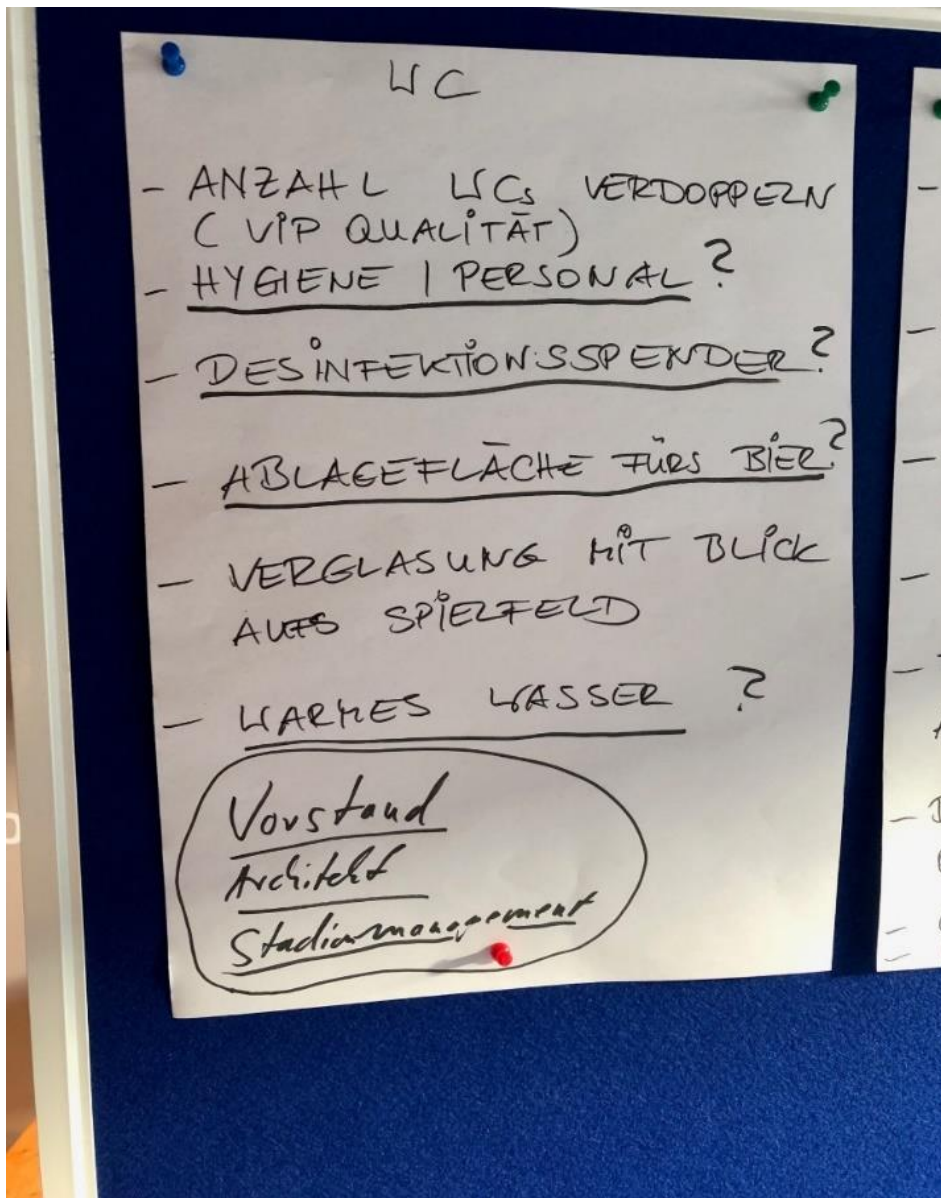 WC
- ANZAHL WCs VERDOPPELN
( VIP QUALITÄT )
- HYGIENE | PERSONAL ?
- DESINFEKTIONSSPENDER ?
- ABLAGEFLÄCHE FÜRS BIER ?
- VERGLASUNG MIT BLICK
AUFS SPIELFELD
- WARMES WASSER ?
Vorstand
Architekt
Stadionmanagement